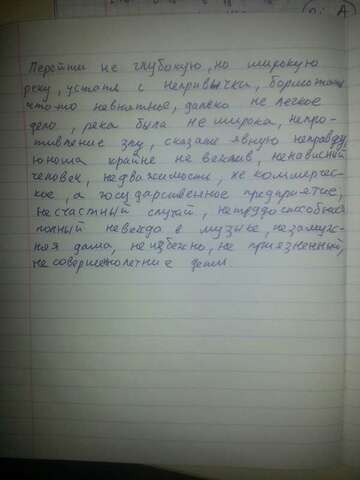 Перейти не глубокую, но широкую
реку, устать с непривычки, бормотать
что-то невнятное, далеко не легкое
дело, река была не широка, непро-
тивление злу, сказать явную неправду,
юноша крайне не вежлив, ненависный
человек, недвижимость, не коммерчес-
кое, а государственное предприятие,
несчастный случай, нетрудоспособный
полный невежда в музыке, незамуж-
няя дама, неизбежно, не приязненный,
несовершеннолетние дети